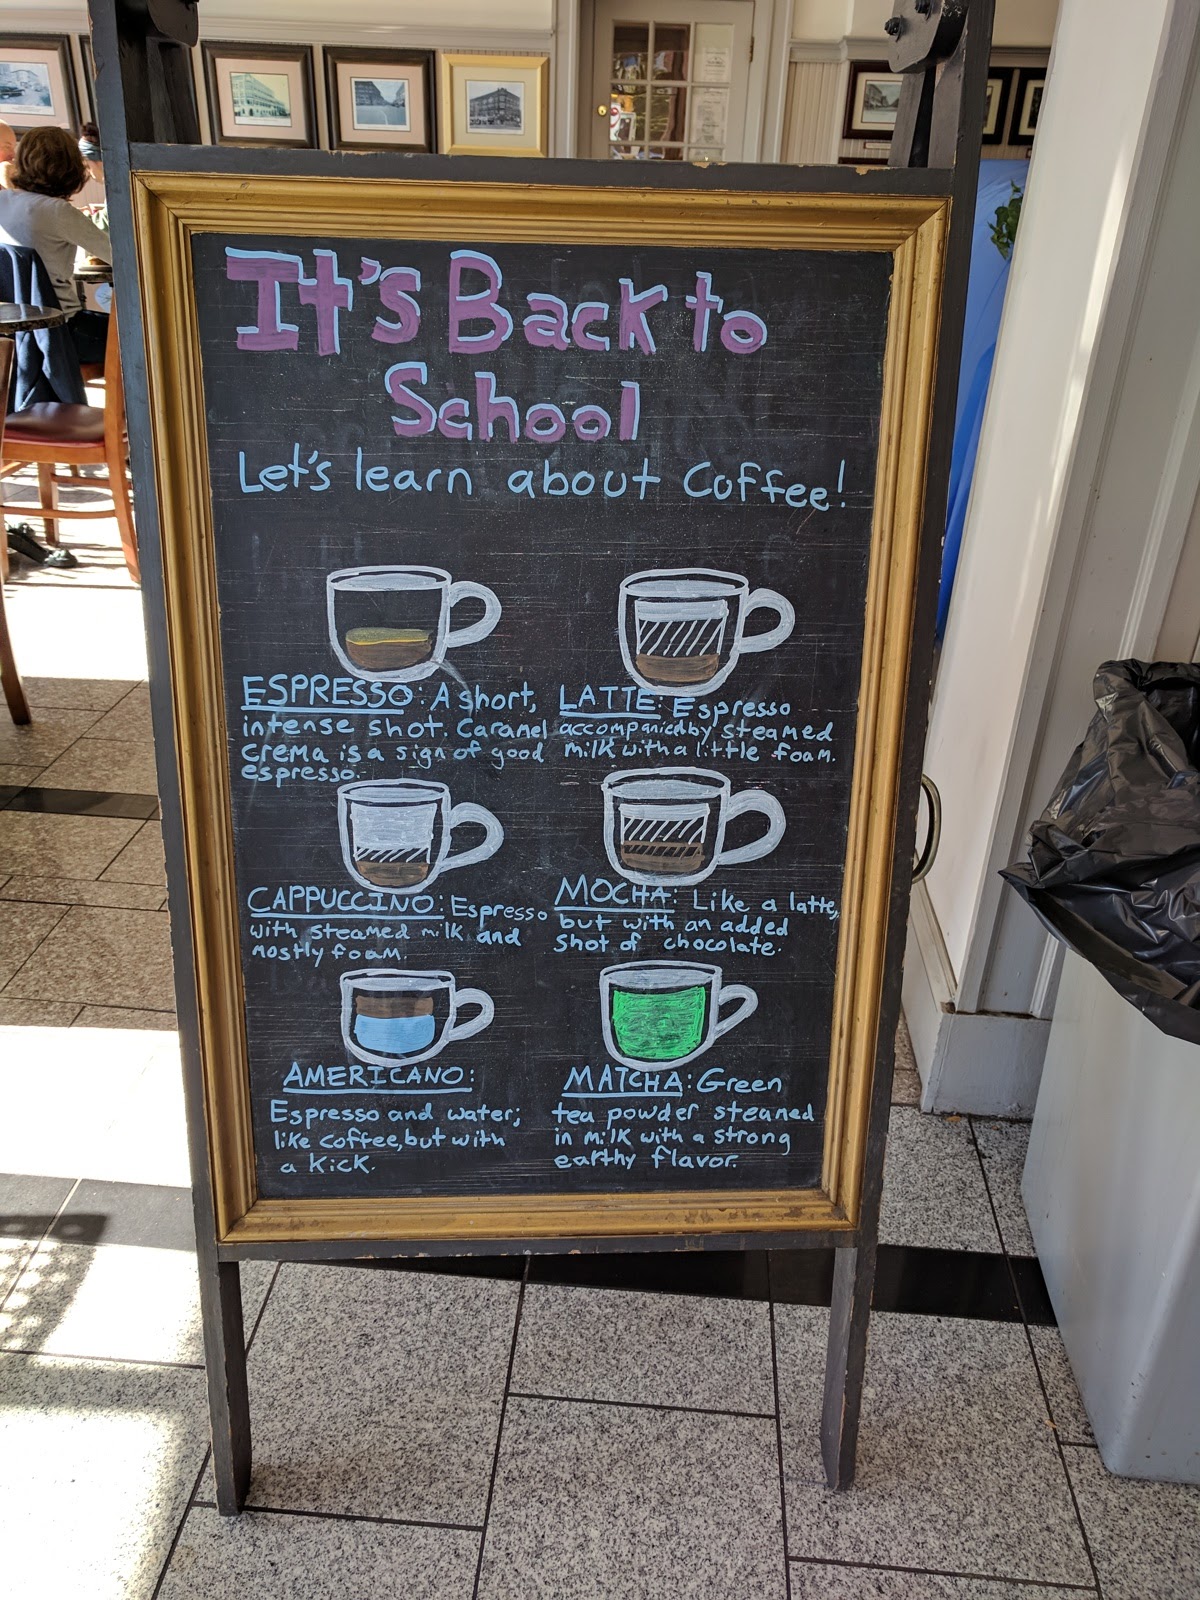 It's Back to
School
Let's learn about Coffee!
ESPRESSO: A short,
intense shot. Caramel
crema is a sign of good
espresso.
LATTE: Espresso
accompanied by steamed
milk with a little foam.
CAPPUCCINO: Espresso
with steamed milk and
mostly foam.
MOCHA: Like a latte,
but with an added
shot of chocolate.
AMERICANO:
Espresso and water;
like coffee, but with
a kick.
MATCHA: Green
tea powder steamed
in milk with a strong
earthy flavor.